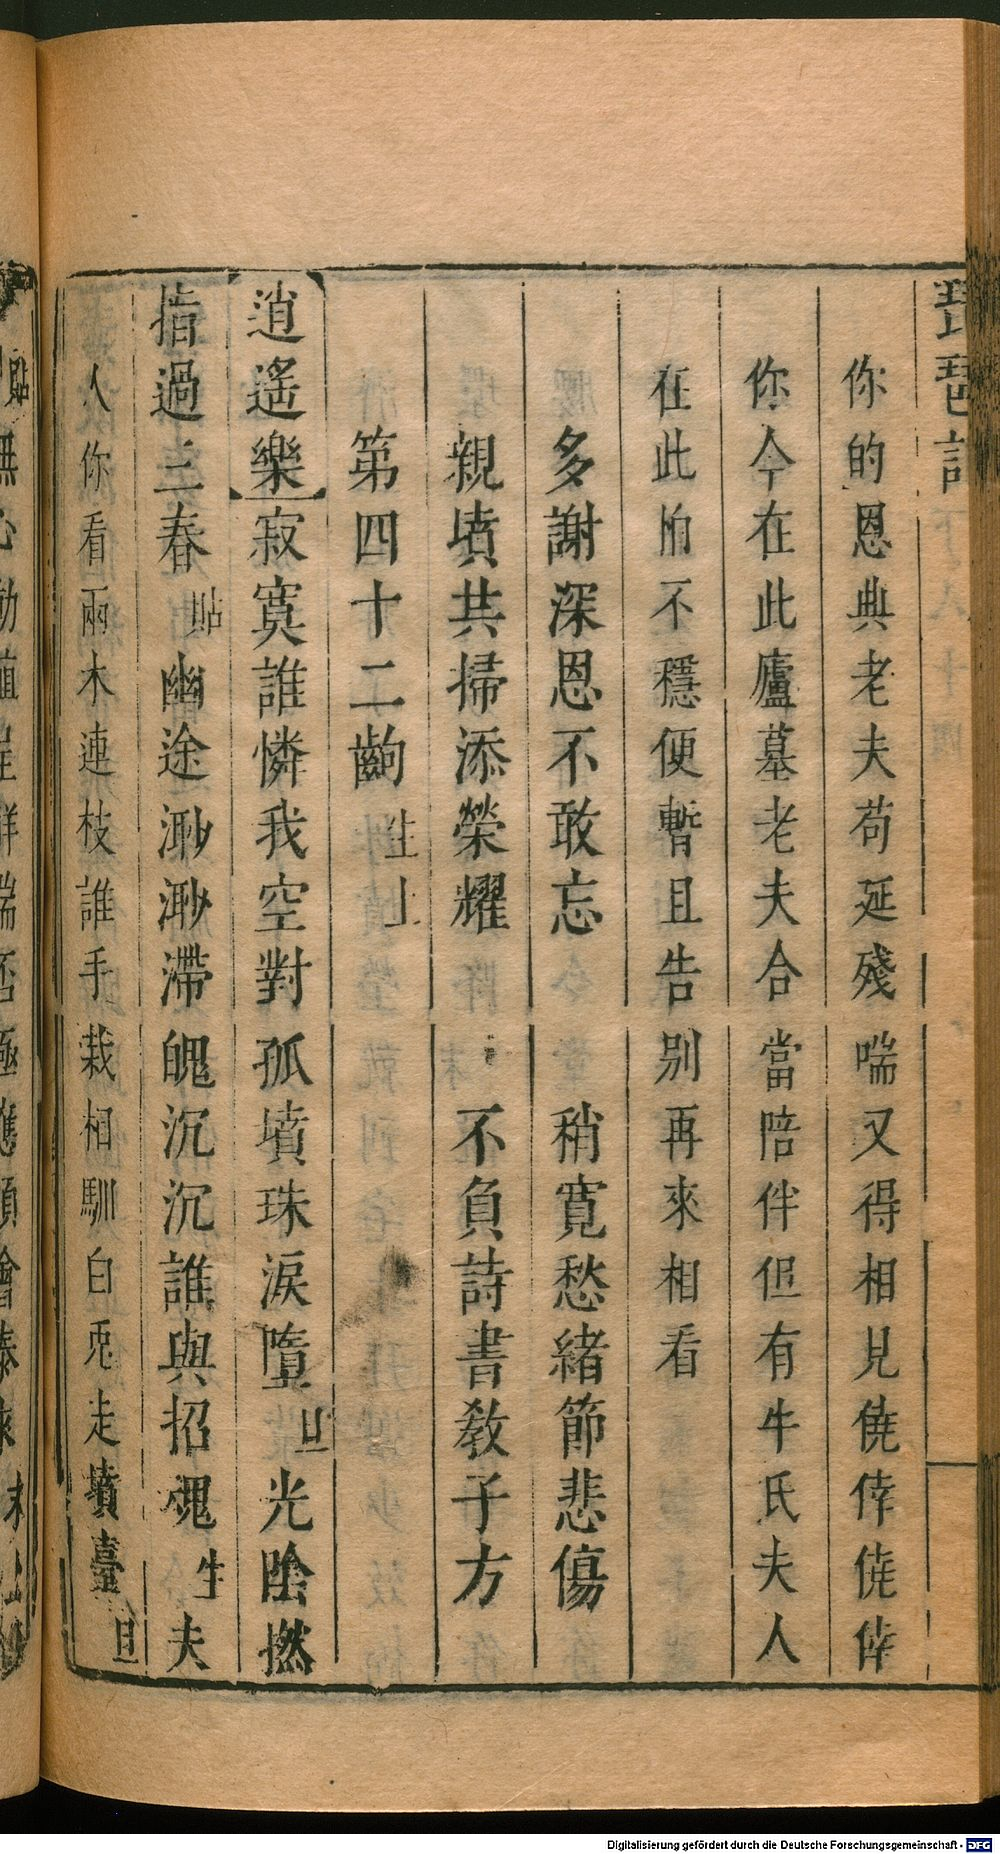 琵琶記
你的恩典老夫苟延殘喘又得相見僥倖僥倖
你今在此廬墓老夫合當陪伴但有牛氏夫人
在此怕不穩便暫且告別再來相看
多謝深恩不敢忘 稍寬愁緒節悲傷
親墳共掃添榮耀 不負詩書教子方
第四十二齣 生上
逍遙樂 寂寞誰憐我空對孤墳珠淚墮 旦 光陰撚
指過三春 貼 幽途渺渺滯魄沉沉誰與招魂 生 夫
人你看兩木連枝誰手栽相馴白兎走墳臺 旦
Digitalisierung gefördert durch die Deutsche Forschungsgemeinschaft - DFG